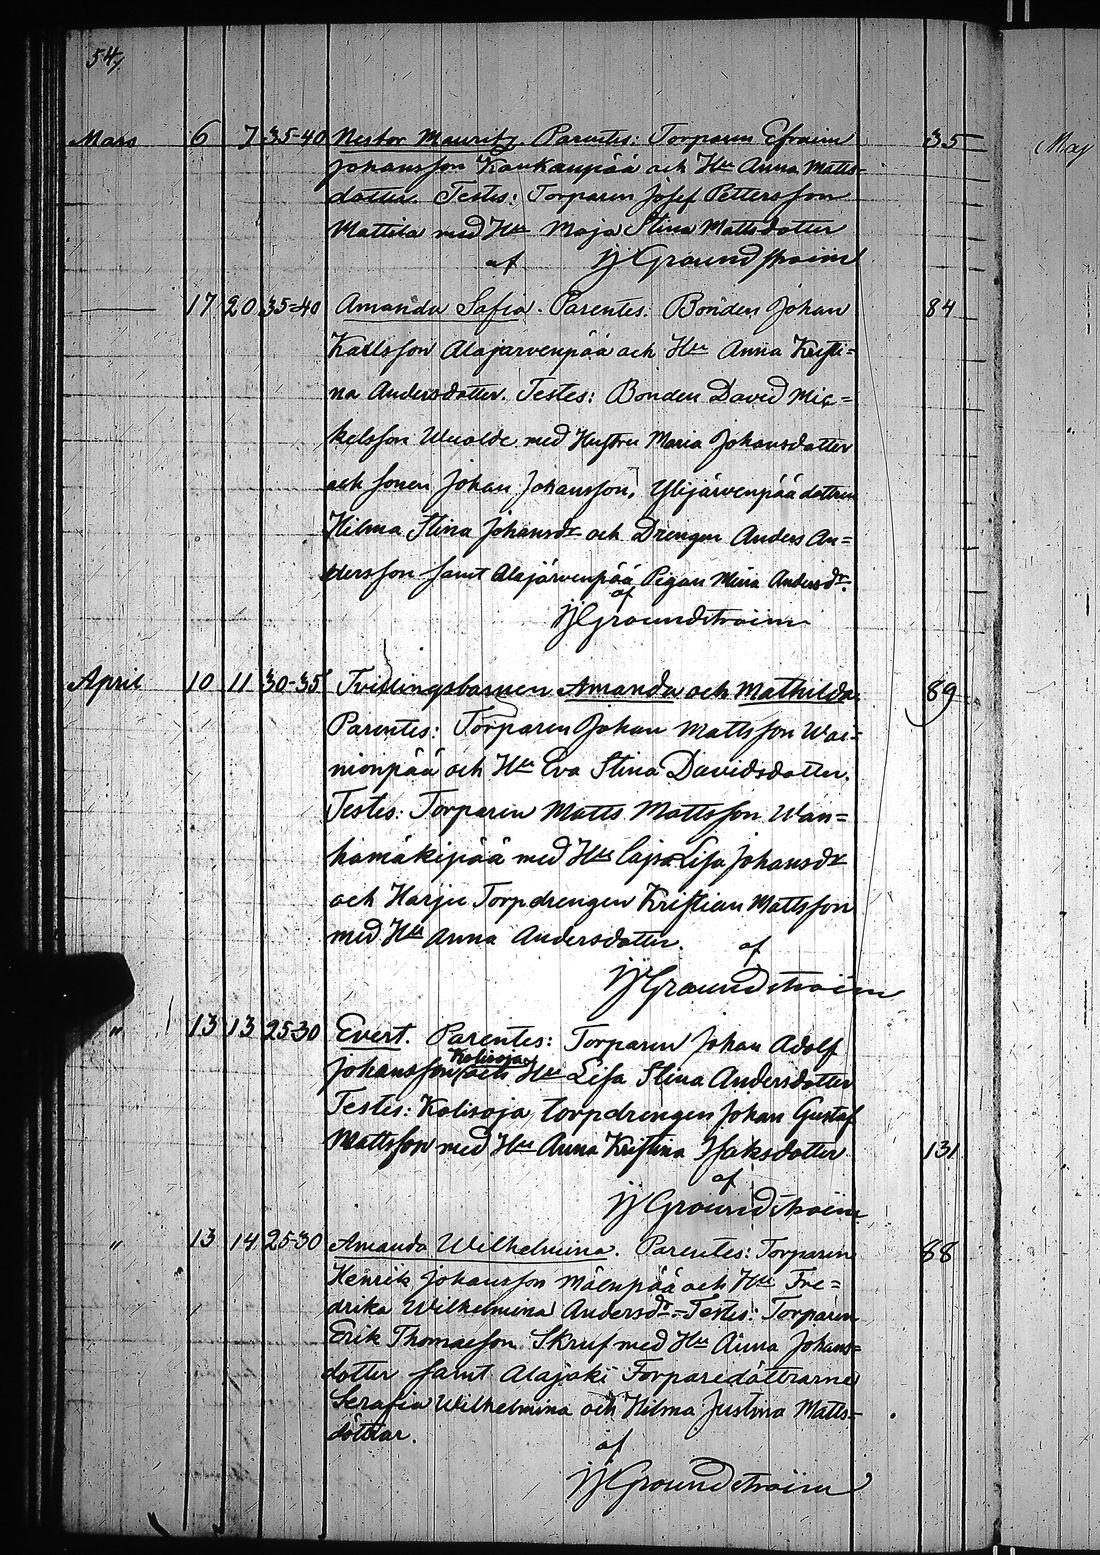 54,
Mars 6 7 35-40 Nestor Mauritz. Parentes: Torparen Efraim 35
Johansson Kaukanpää och Hu Anna Matts-
dotter. Testes: Torparen Josef Pettersson
Mattila med Hu Maja Stina Mattsdotter
af JJGroundstroim
— 17 20 35-40 Amanda Safia. Parentes: Bonden Johan 84
Karlsson Alajarvenpää och Hu Anna Kristi=
na Andersdotter. Testes: Bonden David Mic=
kelsson Wuolde med Hustru Maria Johansdotter
och sonen Johan Johansson, Ylijärvenpää dottren
Hilma Stina Johansdr och Drengen Anders An=
dersson samt Alajärvenpää Pigan Miina Andersdr.
af
JJGroundstroim
April 10 11 30-35 Tvillingsbarnen Amanda och Mathilda. 89
Parentes: Torparen Johan Mattsson Wai=
nionpää och Hu Eva Stina Davidsdotter.
Testes: Torparen Matts Mattsson Wan=
hamäkipää med Hu Cajsa Lisa Johansdr
och Harju Torpdrengen Kristian Mattsson
med Hu Anna Andersdotter. af
JJGroundstroim
" 13 13 25-30 Evert. Parentes: Torparen Johan Adolf
Kolisoja
Johansson och Hu Lisa Stina Andersdotter
Testes: Kolisoja torpdrengen Johan Gustaf
Mattsson med Hu Anna Kristina Isaksdotter 131
af
JJGroundstroim
" 13 14 25-30 Amanda Wilhelmina. Parentes: Torparen 88
Henrik Johansson Mäenpää och Hu Fre=
drika Wilhelmina Andersdr.- Testes: Torparen
Erik Thomasson Skruf med Hu Anna Johans=
dotter samt Alajoki Torparedöttrarne
Serafia Wilhelmina och Hilma Justina Matts=
döttrar.
af
JJGroundstroim
Maj